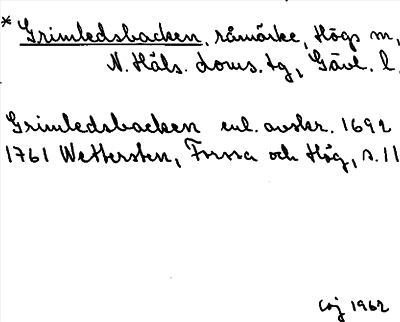 * Grimledsbacken, råmärke, Högs m,
N. Häls. doms. tg, Gävl. l.
Grimledsbacken enl. avskr. 1692
1761 Wettersten, Forssa och Hög, s. 11
CEJ 1962